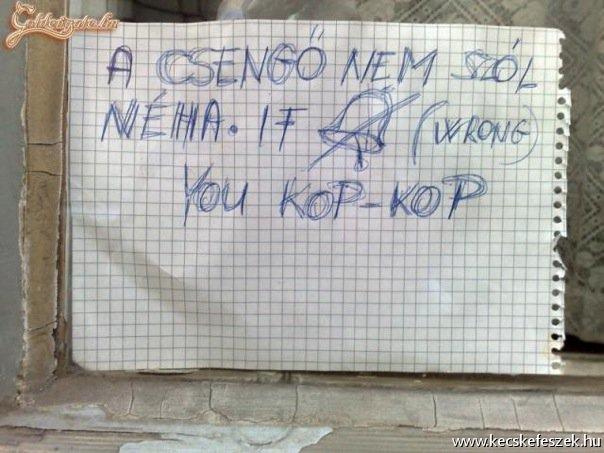 A CSENGŐ NEM SZÓL
NÉHA. IF (WRONG)
YOU KOP-KOP
www.kecskefeszek.hu